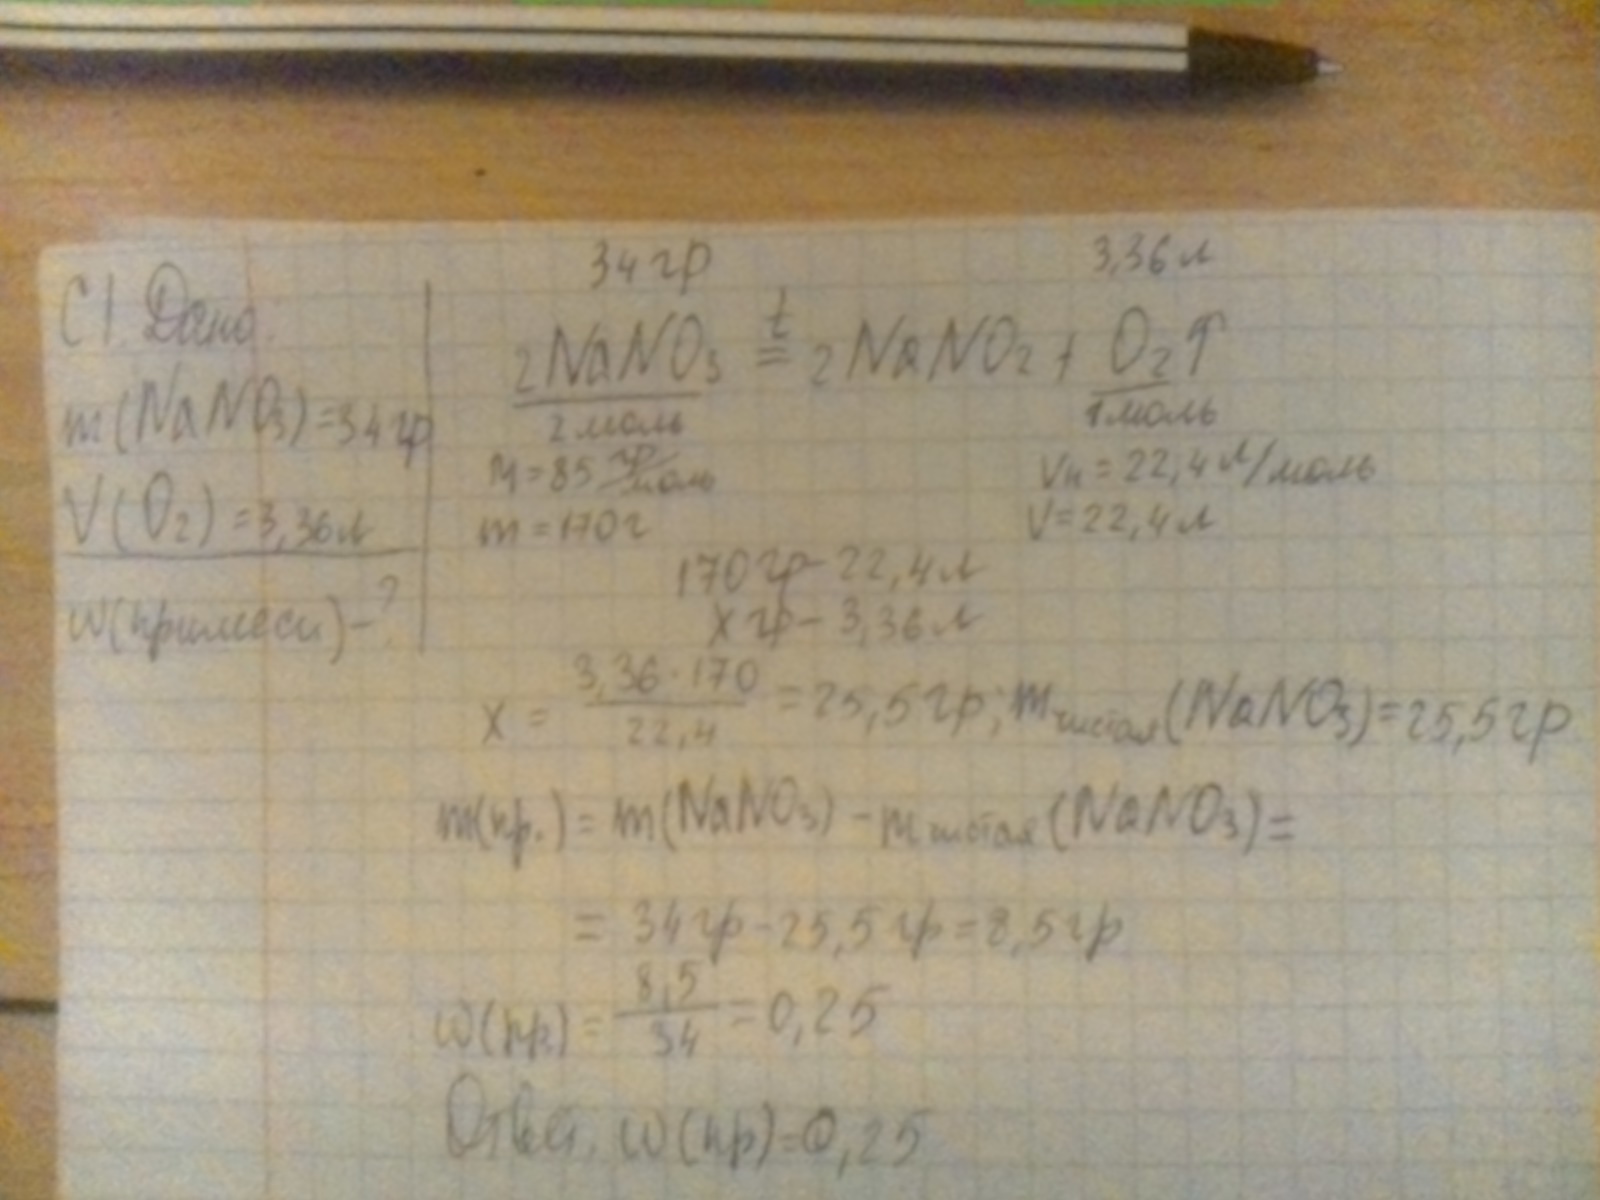 С1. Дано.
m(NaNO3)=34гр
V(O2)=3,36л
w(примеси)-?
34гр 3,36л
2NaNO3 t= 2NaNO2 + O2↑
2моль 1моль
M=85 гр/моль Vн=22,4 л/моль
m=170г V=22,4л
170гр-22,4л
Xгр-3,36л
X = 3,36·170/22,4 =25,5гр; mчистая(NaNO3)=25,5гр
m(пр.)=m(NaNO3)-mчистая(NaNO3)=
= 34гр-25,5гр=8,5гр
w(пр)= 8,5/34 =0,25
Ответ. w(пр)=0,25